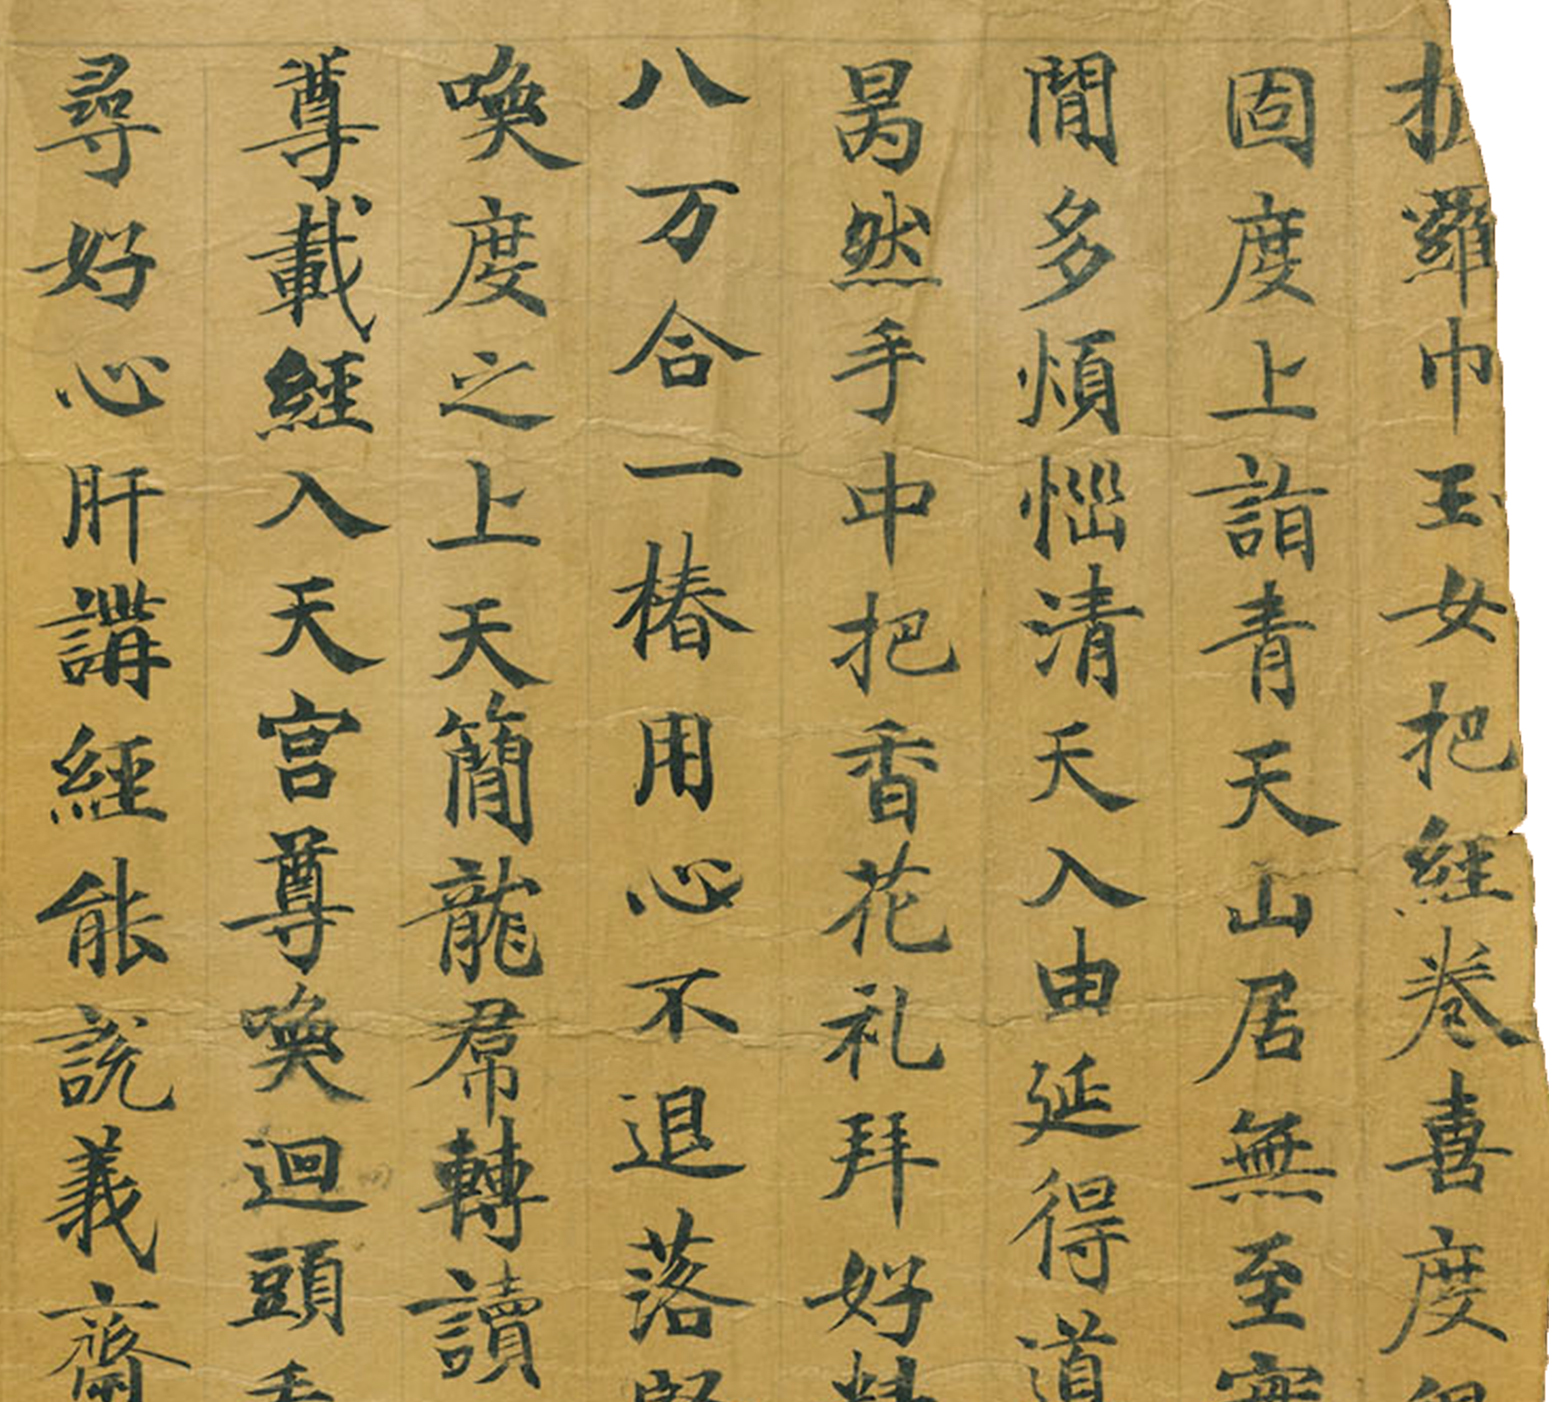 羅巾玉女把經卷喜度
固度上詣青天山居無至
閒多煩惱清天入由延得道
曷然手中把香花礼拜好
八万合一椿用心不退落
喚度之上天簡龍帬轉讀
尊載經入天宮尊喚迴頭
尋好心肝講經能說義齋